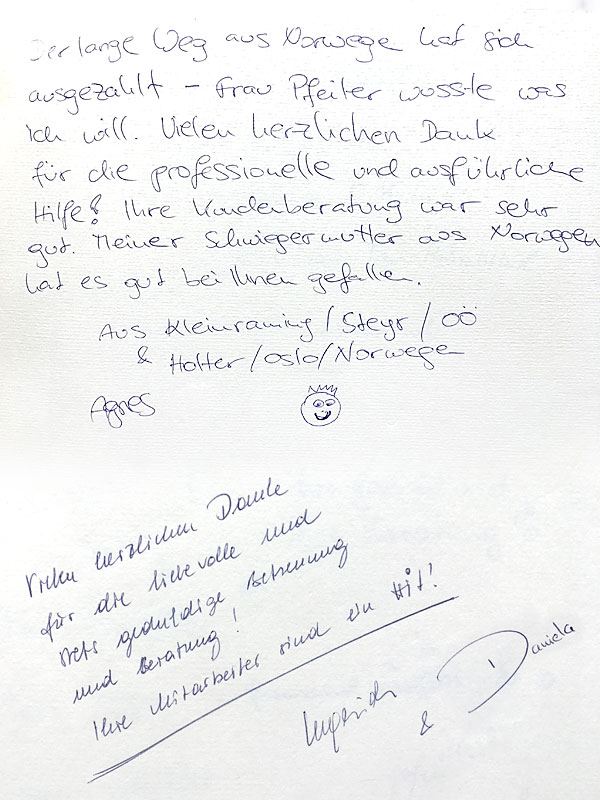 Der lange Weg aus Norwege hat sich
ausgezahlt – Frau Pfeiler wusste was
ich will. Vielen herzlichen Dank
für die professionelle und ausführliche
Hilfe! Ihre Kundenberatung war sehr
gut. Meiner Schwiegermutter aus Norwegen
hat es gut bei Ihnen gefallen.
Aus Kleinraming / Steyr / OÖ
& Holter / Oslo / Norwege
Agnes
Vielen herzlichen Dank
für die liebevolle und
stets geduldige Betreuung
und Beratung!
Ihre Mitarbeiter sind ein Hit!
& Daniela